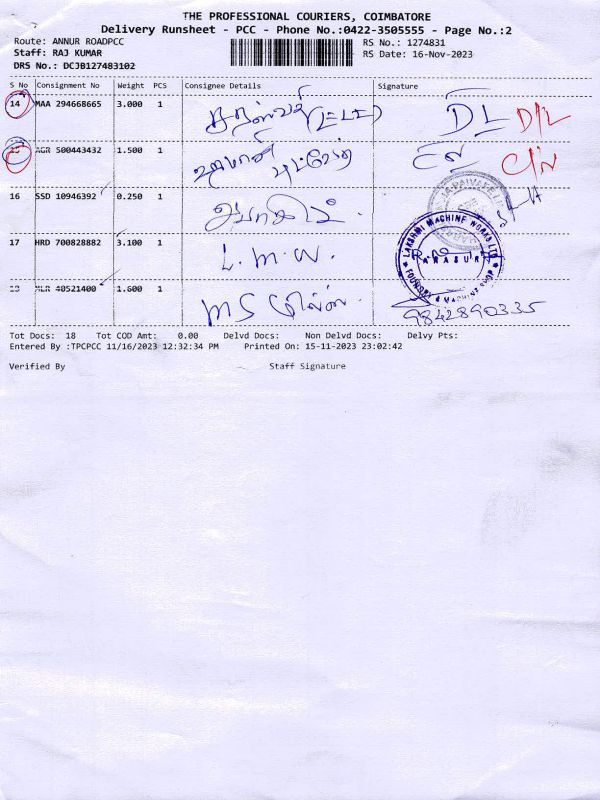 THE PROFESSIONAL COURIERS, COIMBATORE
Delivery Runsheet - PCC - Phone No.:0422-3505555 - Page No.:2
Route: ANNUR ROADPCC
RS No.: 1274831
Staff: RAJ KUMAR
RS Date: 16-Nov-2023
DRS No.: DCJB127483102
S No Consignment No Weight PCS Consignee Details Signature
14 MAA 294668665 3.000 1 DL D/L
500443432 1.500 1 C/N
16 SSD 10946392 0.250 1
17 HRD 700828882 3.100 1 L.M.W.
40521400 1.600 1 MS மில்ஸ்.
LAKSHMI MACHINE WORKS LTD
ARASUR
FOUNDRY & MACHINE SHOP
9842890335
Tot Docs: 18 Tot COD Amt: 0.00 Delvd Docs: Non Delvd Docs: Delvy Pts:
Entered By :TPCPCC 11/16/2023 12:32:34 PM Printed On: 15-11-2023 23:02:42
Verified By Staff Signature